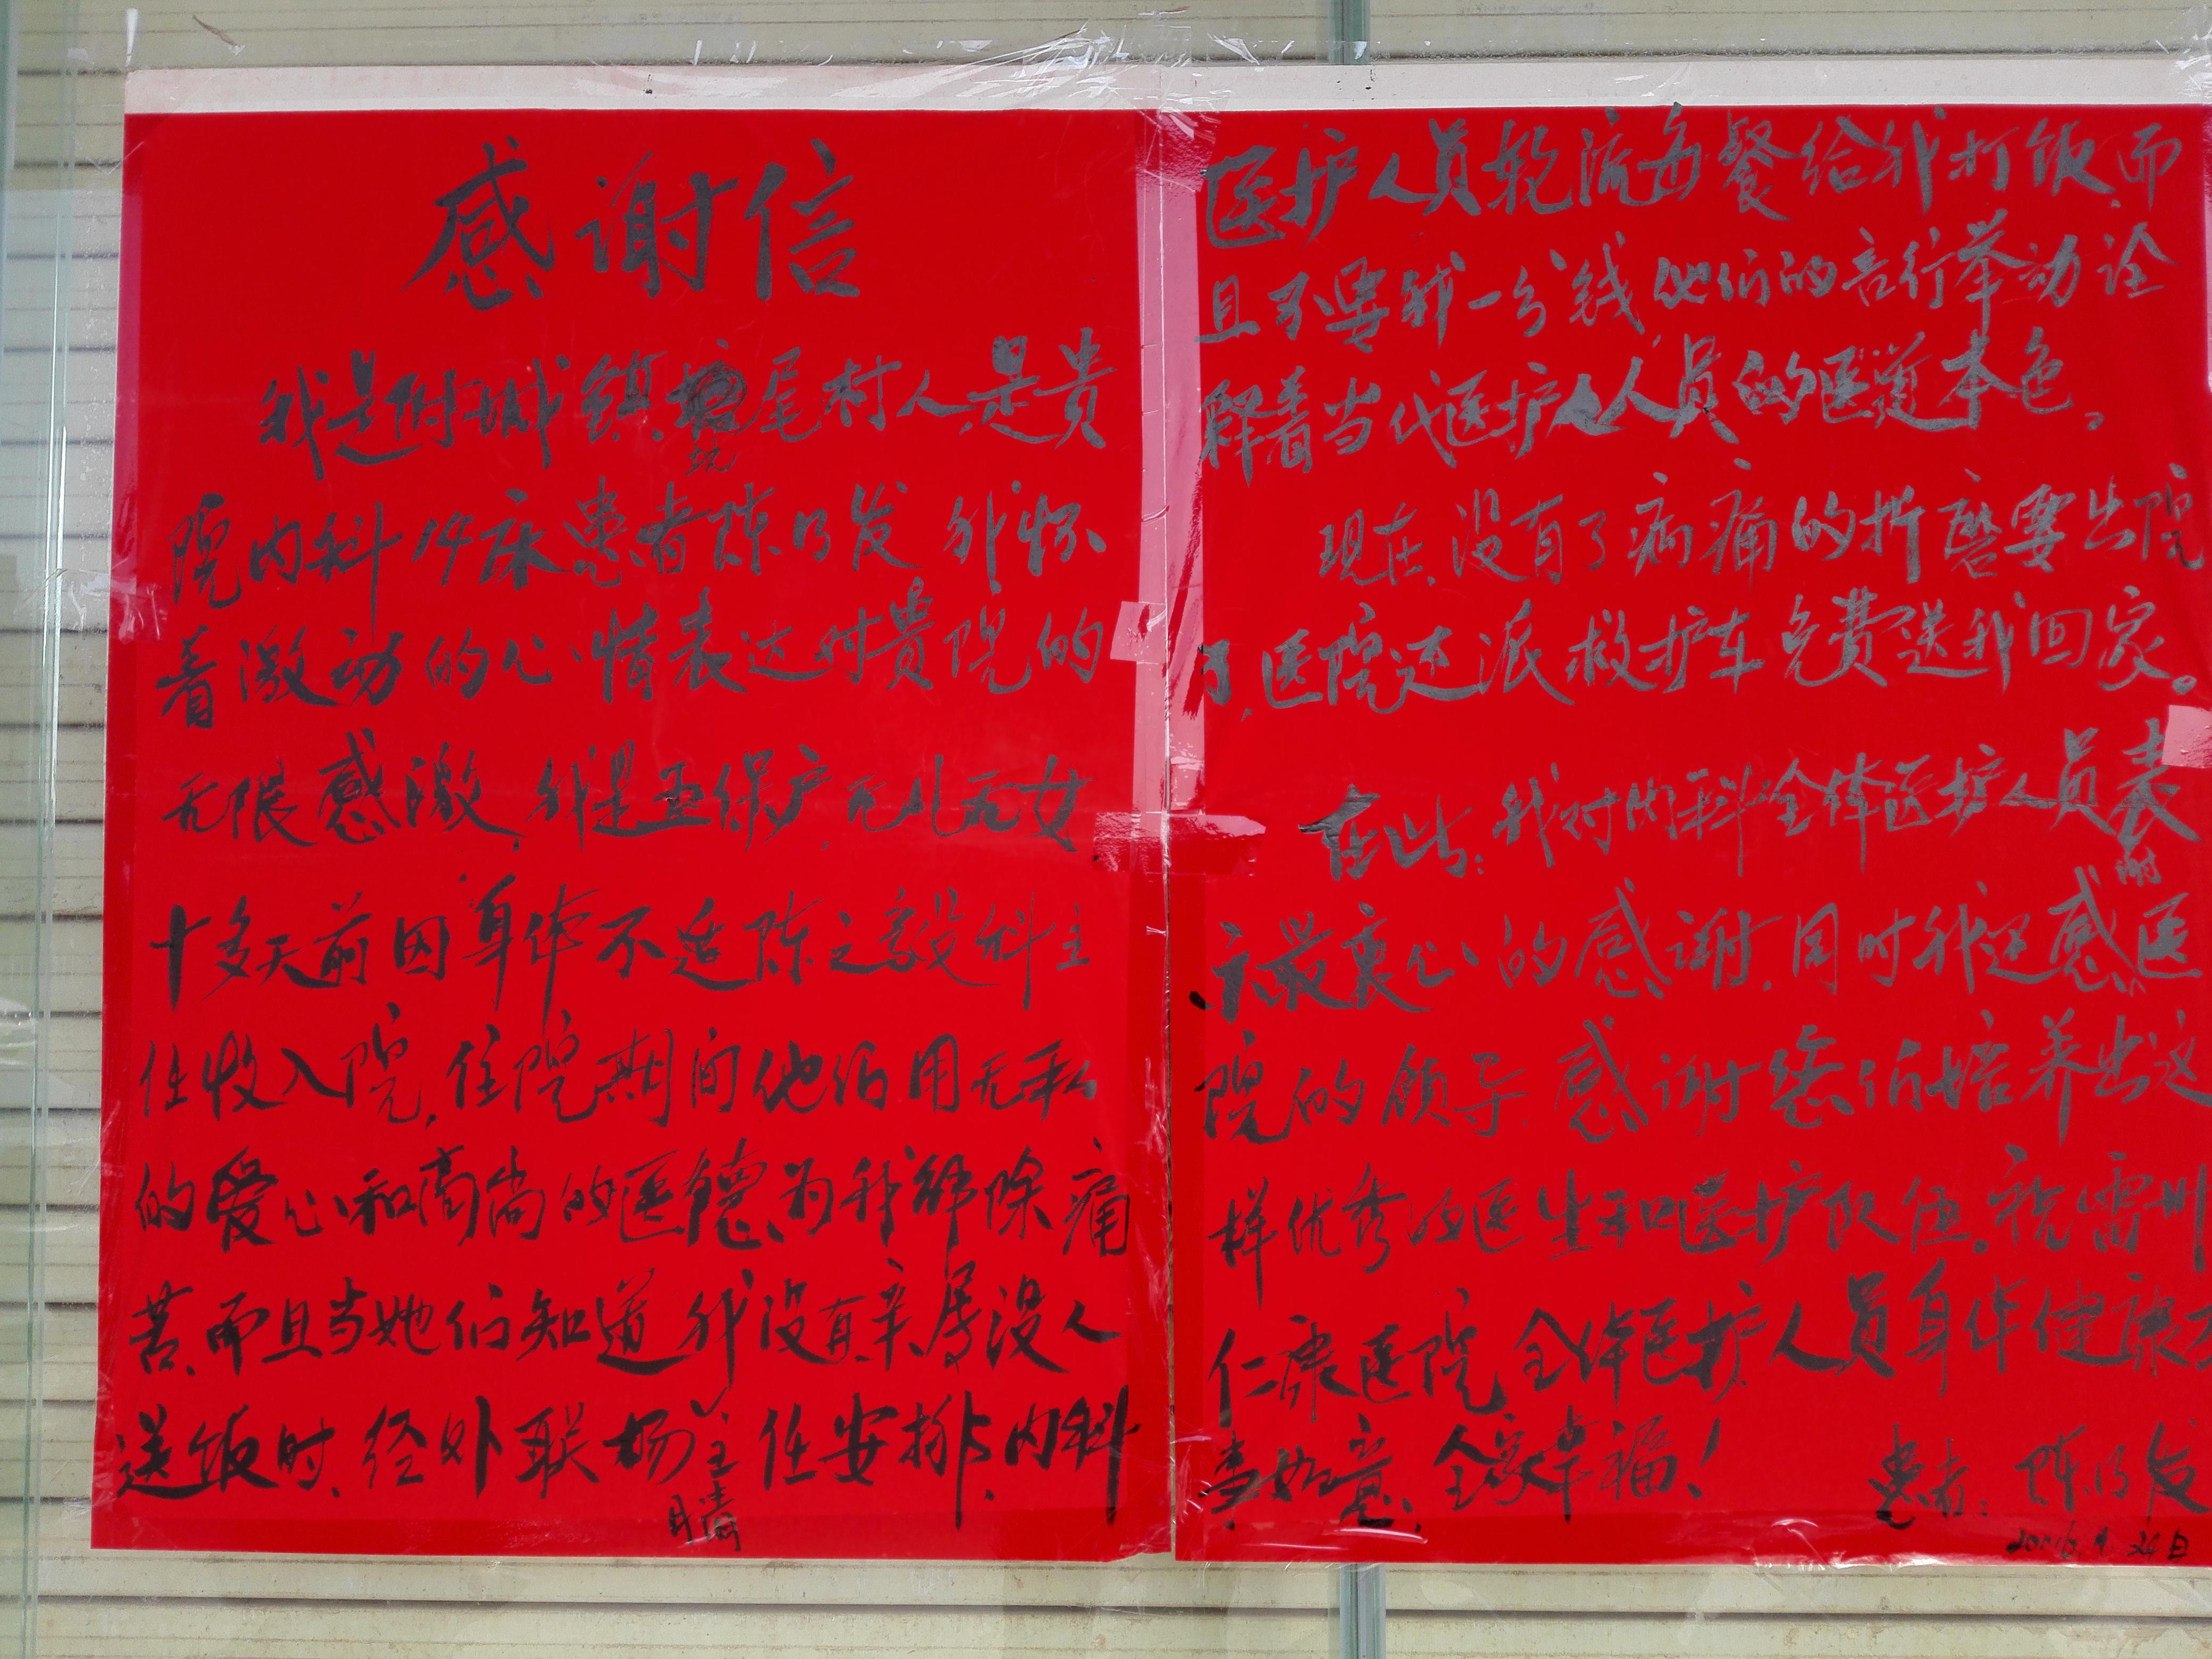 感谢信
我是附城镇坑尾村人,是贵
院内科14床患者陈乃发 我怀
着激动的心情表达对贵院的
无限感激,我是五保户,无儿无女
十多天前因身体不适陈之毅科主
任收入院,住院期间他们用无私
的爱心和高尚的医德、为我解除痛
苦、而且当她们知道我没有亲属没人
送饭时、经外联杨晴主任安排、内科
医护人员轮流每餐给我打饭,而
且不要我一分钱,他们的言行举动诠
释着当代医护人员的医道本色。
现在、没有了病痛的折磨要出院
了,医院还派救护车免费送我回家。
在此:我对内科全体医护人员表
示最衷心的感谢,同时我还感谢医
院的领导 感谢您们培养出这
样优秀的医生和医护队伍,祝雷州
仁康医院全体医护人员身体健康万
事如意,全家幸福!
患者:陈乃发
24日